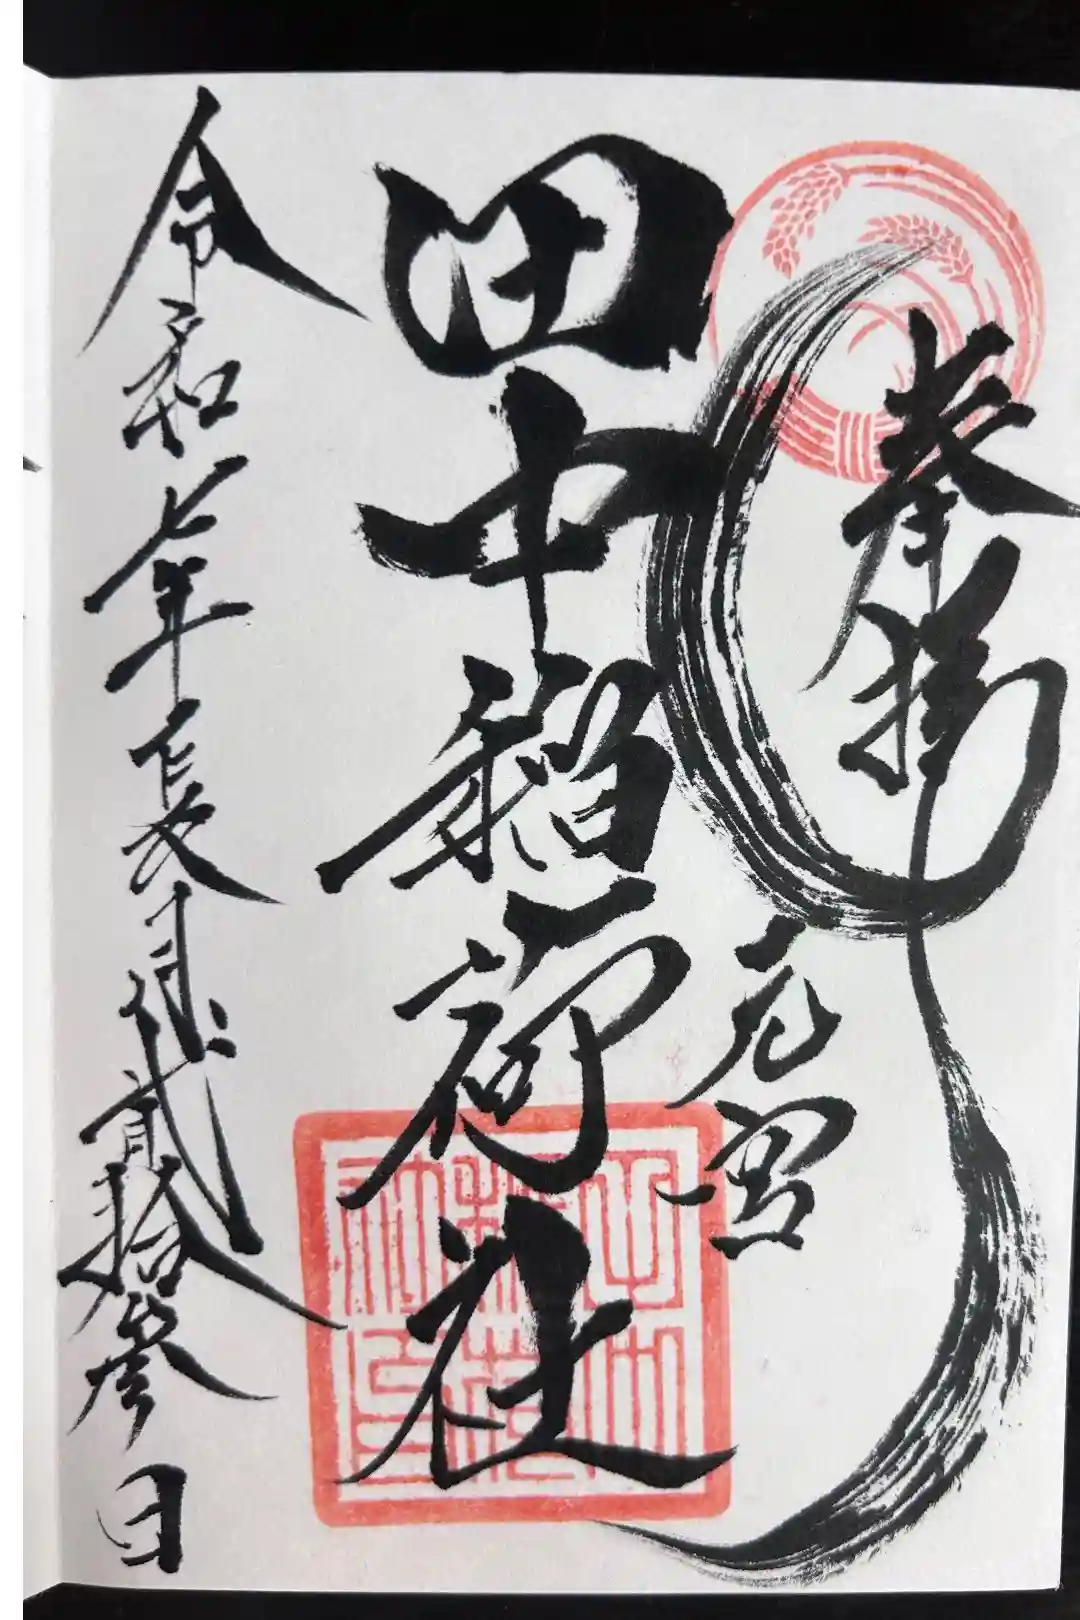 奉拝
元宮
田中稲荷社
令和七年長月貳拾參日